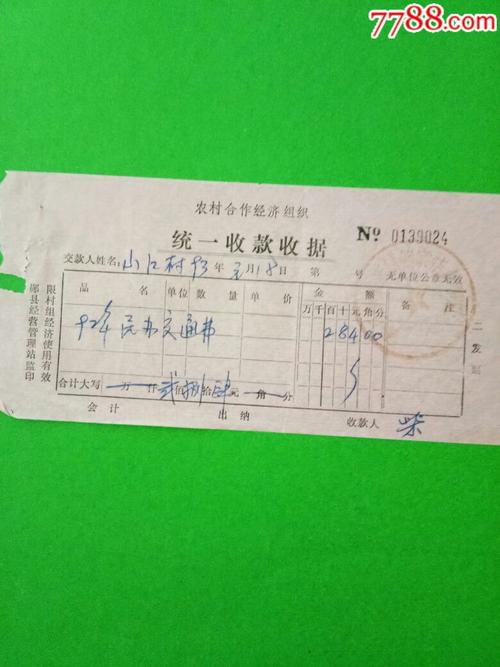 7788.com
农村合作经济组织
统一收款收据 № 0139024
交款人姓名:山口村 93年 3月18日 第 号 无单位公章无效
品名 单位 数量 单价 金额 备注
万千百十元角分
92年民办交通费 28400
合计大写 万 仟 贰佰捌拾肆元 角 分
会计 出纳 收款人 柴
限村组经济使用有效
县经营管理站监印
二发票